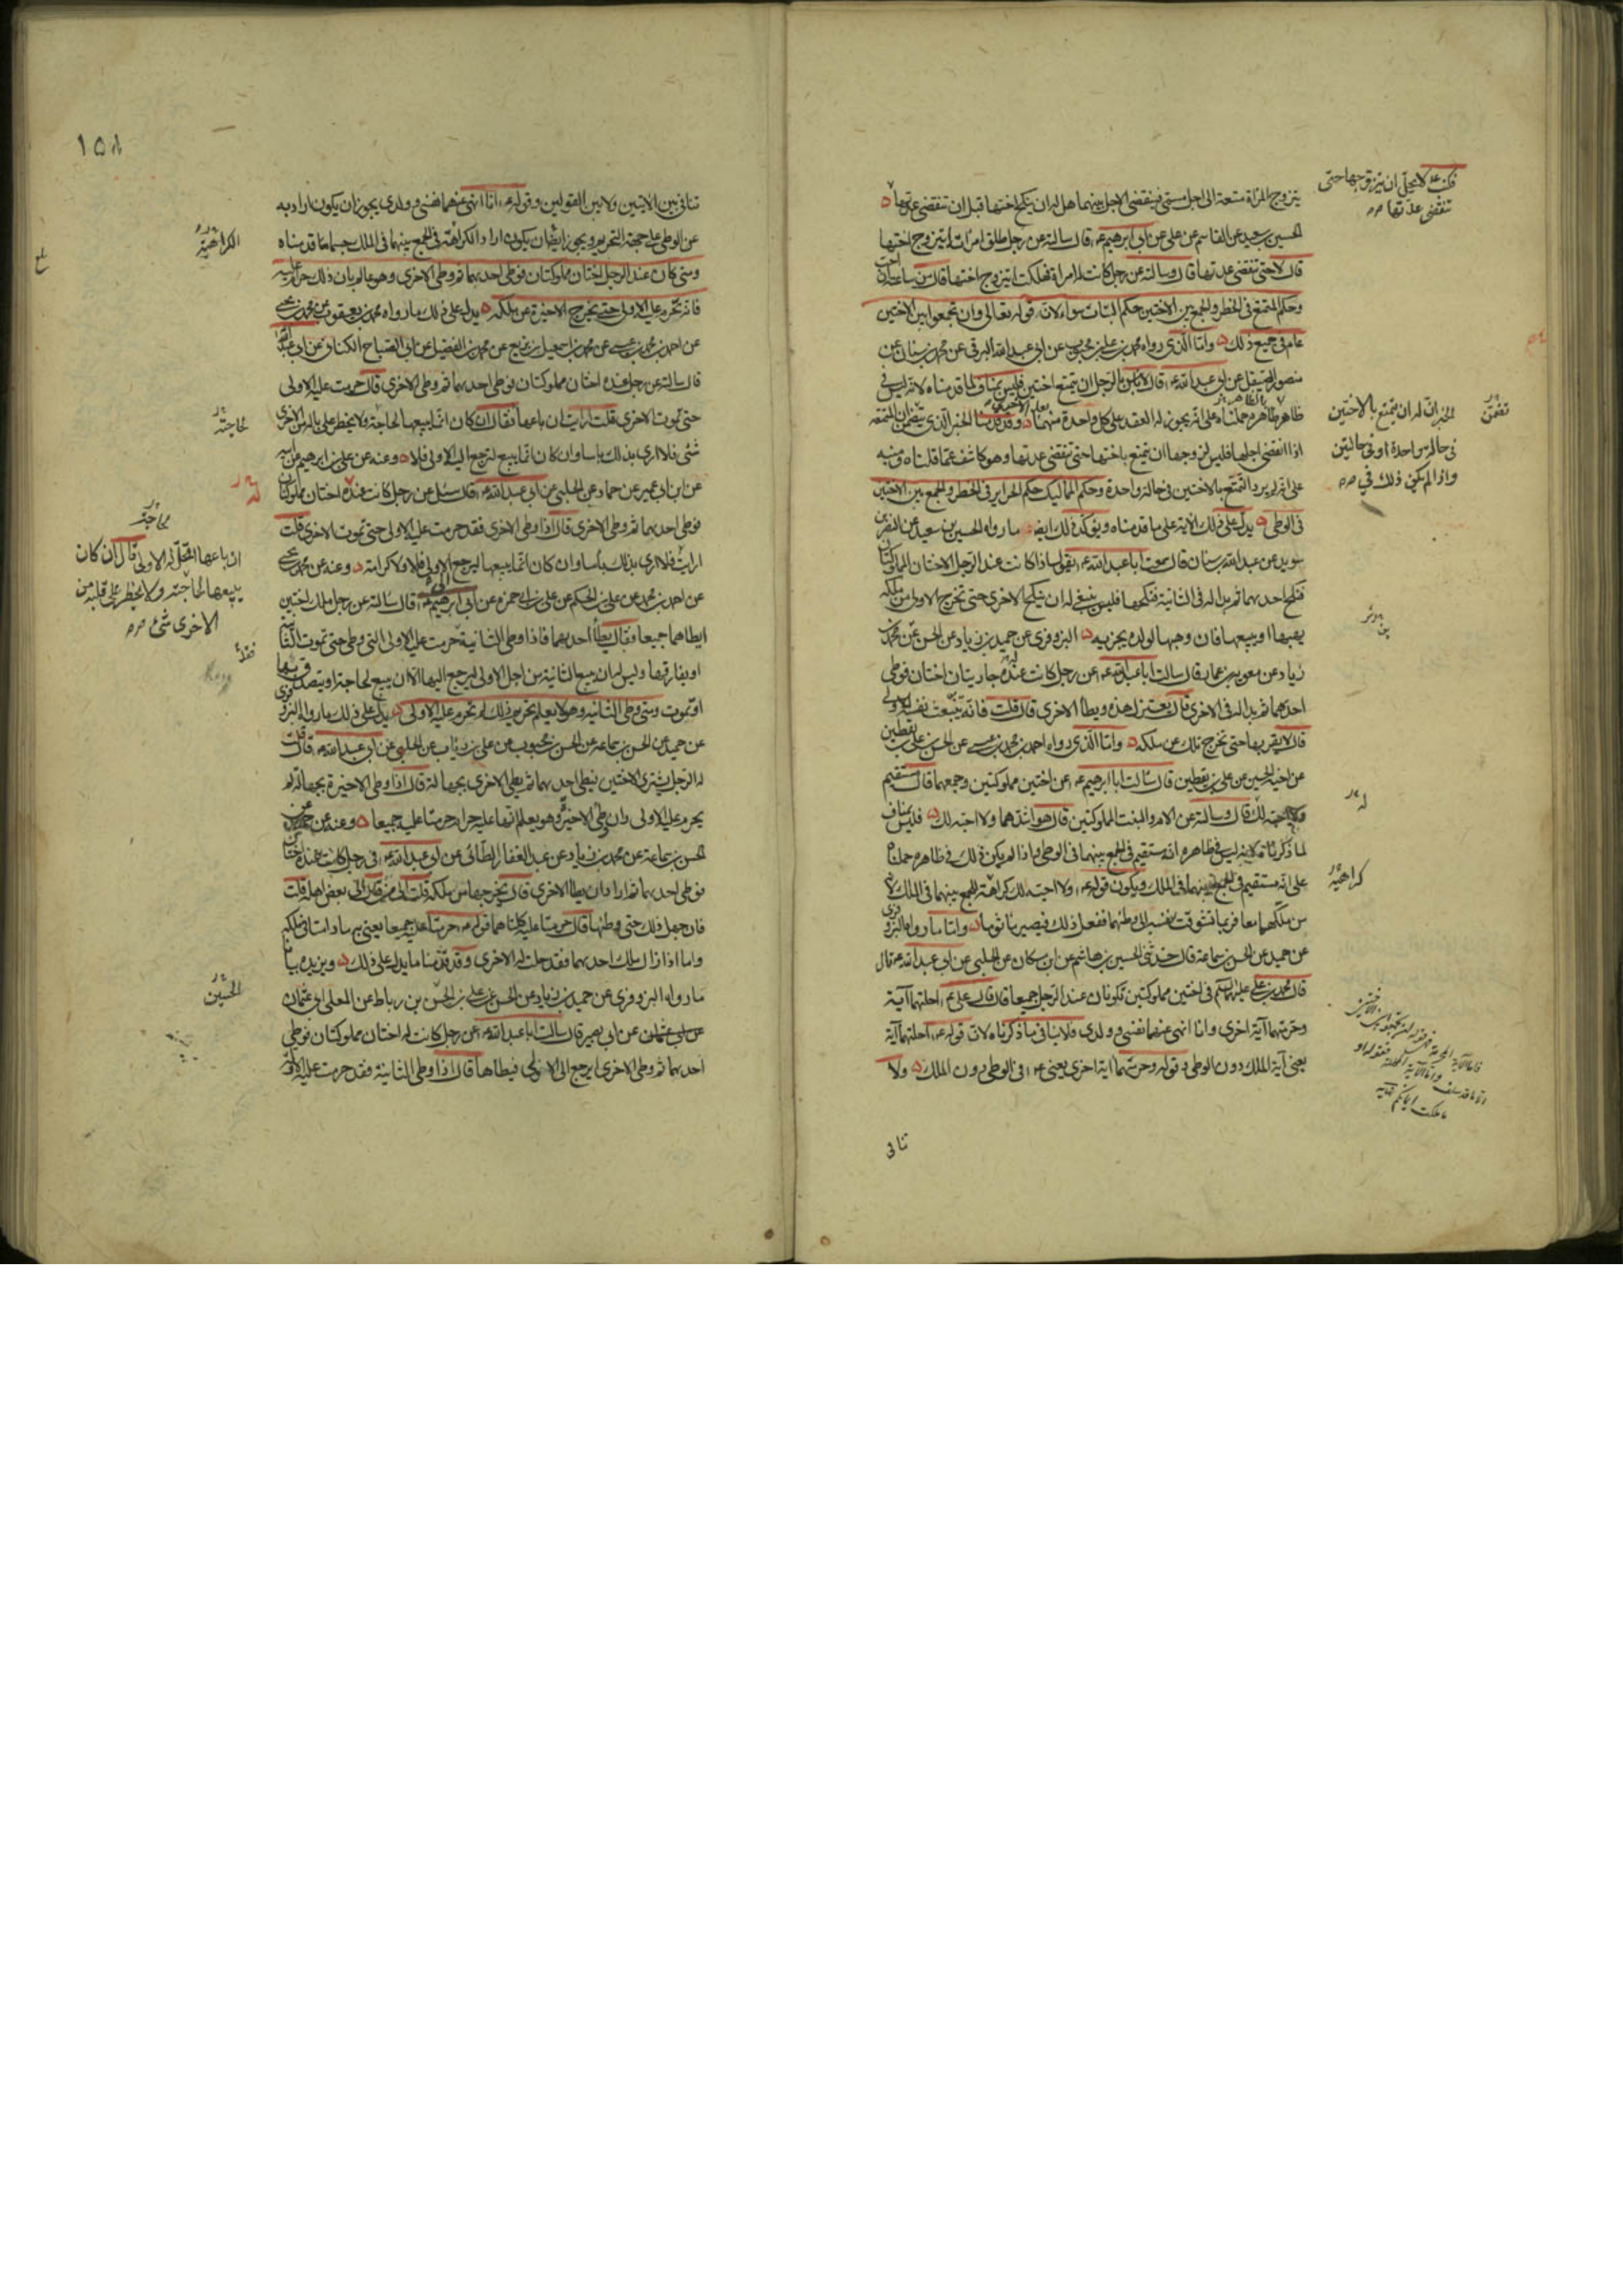 يتزوج المرأة متعة الى اجل مسمى فينقضى الاجل بينهما هل له ان ينكح اختها قبل ان تنقضى عدتها
الحسين بن سعيد عن القاسم عن على عن ابى ابرهيم ع قال سالته عن رجل طلق امراته ايتزوج اختها
قال لا حتى تنقضى عدتها قال وسالته عن رجل كانت له امراة فهلكت ايتزوج اختها قال من ساعته ان احب
وحكم المتمتع فى الخطر والجمع بين الاختين حكم البتات سواء لان قوله تعالى وان تجمعوا بين الاختين
عام فى جميع ذلك واما الذى رواه محمد بن على بن محبوب عن ابى عبد الله البرقى عن محمد بن سنان عن
منصور الصيقل عن ابى عبد الله ع قال لا باس بالرجل ان يتمتع اختين فليس بمناف لما قدمناه لانه ليس فى
ظاهره حملناه على انه يجوز له العقد على كل واحدة منهما وقد قدمنا الخبر الذى يتضمن ان المتمتعه
اذا انقضى اجلها فليس لزوجها ان يتمتع باختها حتى تنقضى عدتها وهو كاشف عما قلناه ومنبه
على انه لم يرد التمتع بالاختين فى حالة واحدة وحكم المماليك حكم الحراير فى الخطر والجمع بين الاختين
فى الوطى يدل على ذلك الاية على ما قدمناه ويؤكد ذلك ايضا ما رواه الحسين بن سعيد عن النضر بن
سويد عن عبد الله بن سنان قال سمعت ابا عبد الله ع يقول اذا كانت عند الرجل الاختان المملوكتان
فنكح احديهما ثم بدا له فى الثانية فنكحها فليس ينبغى له ان ينكح الاخرى حتى تخرج الاولى من ملكه
يهبها او يبيعها فان وهبها لولده يجزيه البزوفرى عن حميد بن زياد عن الحسن عن محمد بن
زياد عن معوية بن عمار قال سالت ابا عبد الله ع عن رجل كانت عنده جاريتان اختان فوطى
احديهما ثم بدا له فى الاخرى قال يعتزل هذه ويطا الاخرى قال قلت فانه تنبعث نفسه للاولى
قال لا يقربها حتى تخرج تلك عن ملكه واما الذى رواه احمد بن محمد بن عيسى عن الحسن بن على بن يقطين
عن اخيه الحسين عن على بن يقطين قال سالت ابا ابرهيم ع عن اختين مملوكتين وجمعهما قال مستقيم
ولا احبه لك قال وسالته عن الام والبنت المملوكتين قال هو اشدهما ولا احبه لك فليس بمناف
لما ذكرناه لانه ليس فى ظاهره انه مستقيم فى الجمع بينهما فى الوطى واذا لم يكن ذلك فى ظاهره حملناه
على انه مستقيم فى الجمع بينهما فى الملك ويكون قوله ع ولا احبه لك كراهة للجمع بينهما فى الملك لان
من ملكهما معا فربما تشوقت نفسه الى وطئهما ففعل ذلك فيصير ماثوما واما ما رواه البزوفرى
عن حميد عن الحسن بن سماعة قال حدثنى الحسين بن هاشم عن ابن مسكان عن الحلبى عن ابى عبد الله ع قال
قال محمد بن على عليهما السلم فى اختين مملوكتين تكونان عند الرجل جميعا قال قال على ع احلتهما آية
وحرمتهما آية اخرى وانا انهى عنهما نفسى وولدى فلا ينافى ما ذكرناه لان قوله ع احلتهما آية
يعنى آية الملك دون الوطى وقوله وحرمتهما اية اخرى يعنى ع فى الوطى دون الملك ولا
تنافى
فكتب ع لا يحل له ان يتزوجها حتى
تنقضى عدتها صح
تضمن
الخبر ان له ان يتمتع بالاختين
فى حالة واحدة او فى حالتين
واذا لم يكن ذلك فى صح
كراهية
١٥٨
تنافى بين الايتين ولا بين القولين وقوله ع انا انهى عنهما نفسى وولدى يجوز ان يكون اراد به
عن الوطى على جهة التحريم ويجوز ايضا ان يكون اراد الكراهة فى الجمع بينهما فى الملك حسبما قدمناه
ومتى كان عند الرجل اختان مملوكتان فوطى احديهما ثم وطى الاخرى وهو عالم بان ذلك حرام عليه
فانه تحرم عليه الاولى حتى تخرج الاخيرة عن ملكه يدل على ذلك ما رواه محمد بن يعقوب عن محمد بن يحيى
عن احمد بن محمد بن عيسى عن محمد بن اسمعيل بن بزيع عن محمد بن الفضيل عن ابى الصباح الكنانى عن ابى عبد الله
قال سالته عن رجل عنده اختان مملوكتان فوطى احديهما ثم وطى الاخرى قال حرمت عليه الاولى
حتى تموت الاخرى قلت ارايت ان باعها فقال ان كان انما يبيعها لحاجة ولا يخطر على باله من الاخرى
شئ فلا ارى بذلك باسا وان كان انما يبيع لترجع اليه الاولى فلا وعنه عن على بن ابرهيم عن ابيه
عن ابن ابى عمير عن حماد عن الحلبى عن ابى عبد الله ع قال سئل عن رجل كانت عنده اختان مملوكتان
فوطى احديهما ثم وطى الاخرى قال اذا وطى الاخرى فقد حرمت عليه الاولى حتى تموت الاخرى قلت
ارايت فلا ارى بذلك باسا وان كان انما يبيعها ليرجع الى الاولى فلا ولا كرامة وعنه عن محمد بن يحيى
عن احمد بن محمد عن على بن الحكم عن على بن ابى حمزه عن ابى ابرهيم ع قال سالته عن رجل ملك اختين
ايطاهما جميعا فقال يطأ احديهما فاذا وطى الثانية حرمت عليه الاولى التى وطى حتى تموت الثانية
او يفارقها وليس له ان يبيع الثانية من اجل الاولى ليرجع اليها الا ان يبيع لحاجة او يتصدق بها
او تموت ومتى وطى الثانية وهو لا يعلم تحريم ذلك لم تحرم عليه الاولى يدل على ذلك ما رواه البزوفرى
عن حميد عن الحسن بن سماعة عن الحسن بن محبوب عن على بن رئاب عن الحلبى عن ابى عبد الله ع قال قلت
له الرجل يشترى الاختين فيطى احديهما ثم يطى الاخرى بجهالة قال اذا وطى الاخيرة بجهالة لم
يحرم عليه الاولى وان وطى الاخيرة وهو يعلم انها عليه حرام حرمتا عليه جميعا وعنه عن حميد عن
الحسن بن سماعة عن محمد بن زياد عن عبد الغفار الطائى عن ابى عبد الله ع فى رجل كانت عنده اختان
فوطى احديهما ثم اراد ان يطا الاخرى قال يخرجها من ملكه قلت الى من قال الى بعض اهله قلت
فان جهل ذلك حتى وطئها قال حرمتا عليه كلتاهما قوله ع حرمتا عليه جميعا يعنى به ما دامتا فى ملكه
واما اذا زال ملك احديهما فقد حلت له الاخرى وقد قدمنا ما يدل على ذلك ويزيده بيانا
ما رواه البزوفرى عن حميد بن زياد عن الحسن عن على بن الحسن بن رباط عن المعلى ابى عثمان
عن ابى بصير قال سالت ابا عبد الله ع عن رجل كانت له اختان مملوكتان فوطى
احديهما ثم وطى الاخرى ايرجع الى الاولى فيطاها قال اذا وطى الثانية فقد حرمت عليه الاولى
الكراهية
لحاجته
لحاجة
ان باعها اتحل له الاولى قال ان كان
يبيعها لحاجته ولا يخطر على قلبه من
الاخرى شئ صح
الحسين